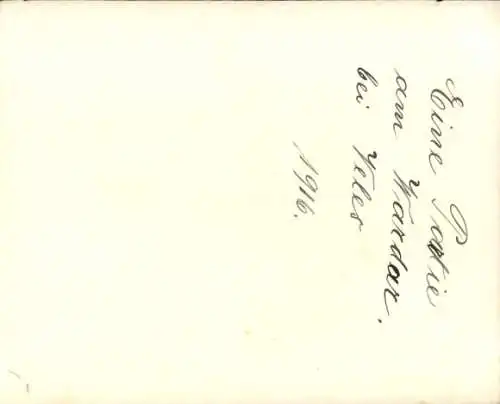 Eine Partie
am Wardar.
bei Veles
1916.